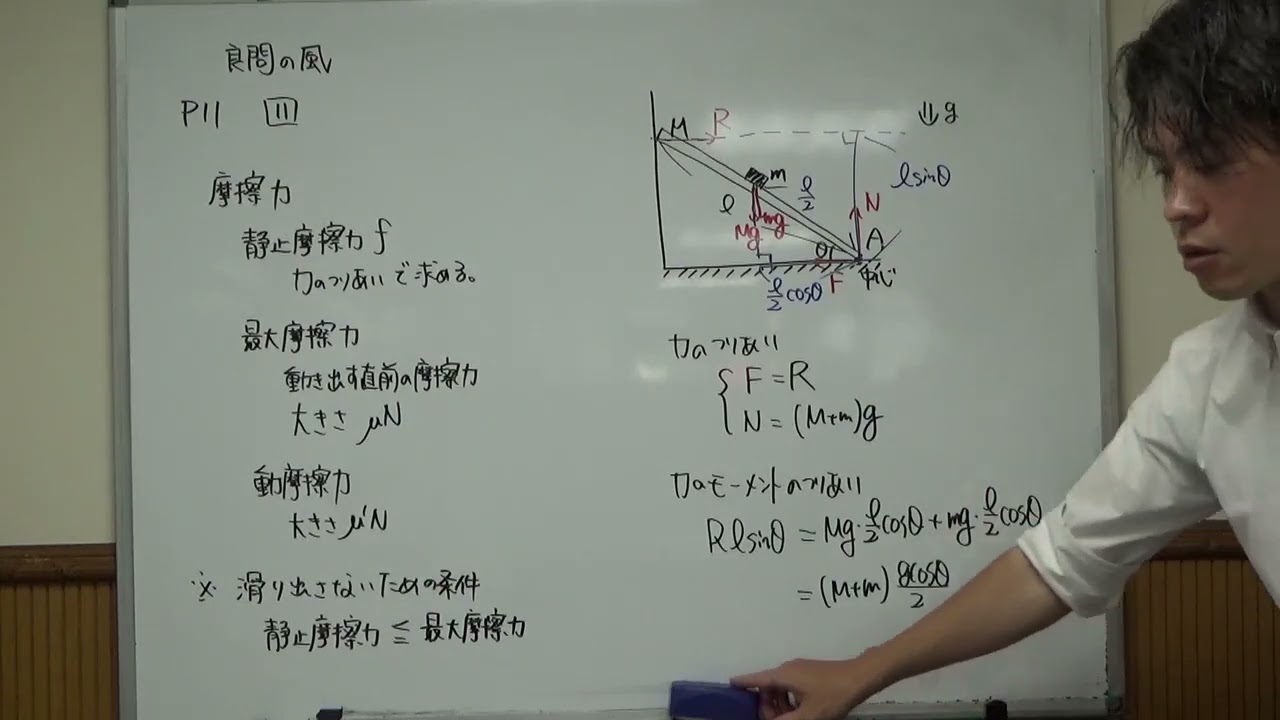 良問の風
P11 11
摩擦力
静止摩擦力 f
力のつりあいで求める。
最大摩擦力
動き出す直前の摩擦力
大きさ μN
動摩擦力
大きさ μ'N
※ 滑り出さないための条件
静止摩擦力 ≦ 最大摩擦力
M R g
m
l l/2 lsinθ
Mg mg N
θ A
l/2 cosθ F 軸心
力のつりあい
F = R
N = (M+m)g
力のモーメントのつりあい
Rlsinθ = Mg・l/2 cosθ + mg・l/2 cosθ
= (M+m)